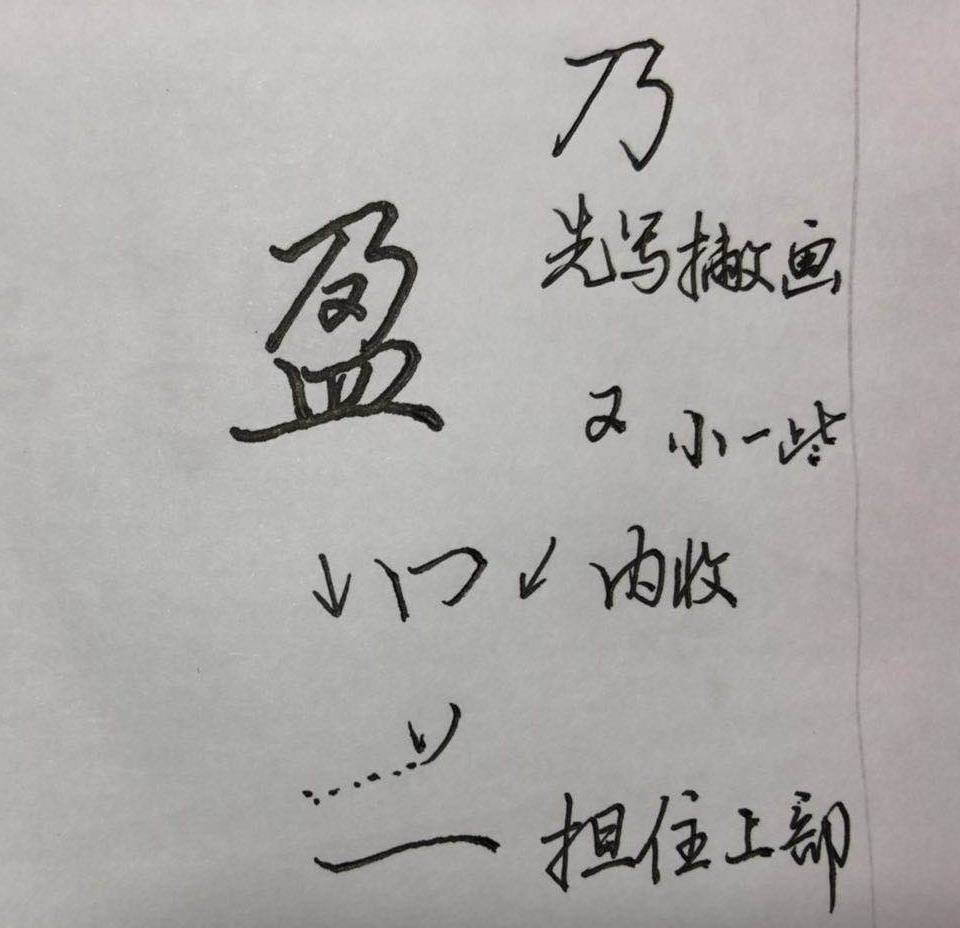 乃
先写撇画
盈
又 小一些
内收
担住上部